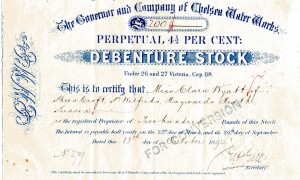 The Governor and Company of Chelsea Water Works.
£300
PERPETUAL 4½ PER CENT:
DEBENTURE STOCK
Under 26 and 27 Victoria, Cap. 118.
This is to certify that Miss Clara Wyatt of
St. Wilfrids, Haywards Heath
Sussex
is the registered Proprietor of Pounds of this Stock.
The Interest is payable half yearly on the 25th March, and the 29th of September
Dated this 19th October 19
No 279
Secretary.